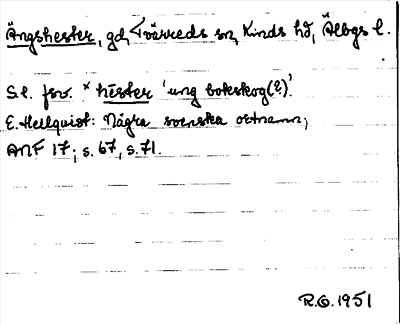 Ängshester, gd, Tvärreds sn, Kinds hd, Älvbgs l.
S.l. fsv. * hēster 'ung bokskog(?)'
E. Hellquist: Några svenska ortnamn,
ANF 17; s. 67, s. 71.
R.G. 1951